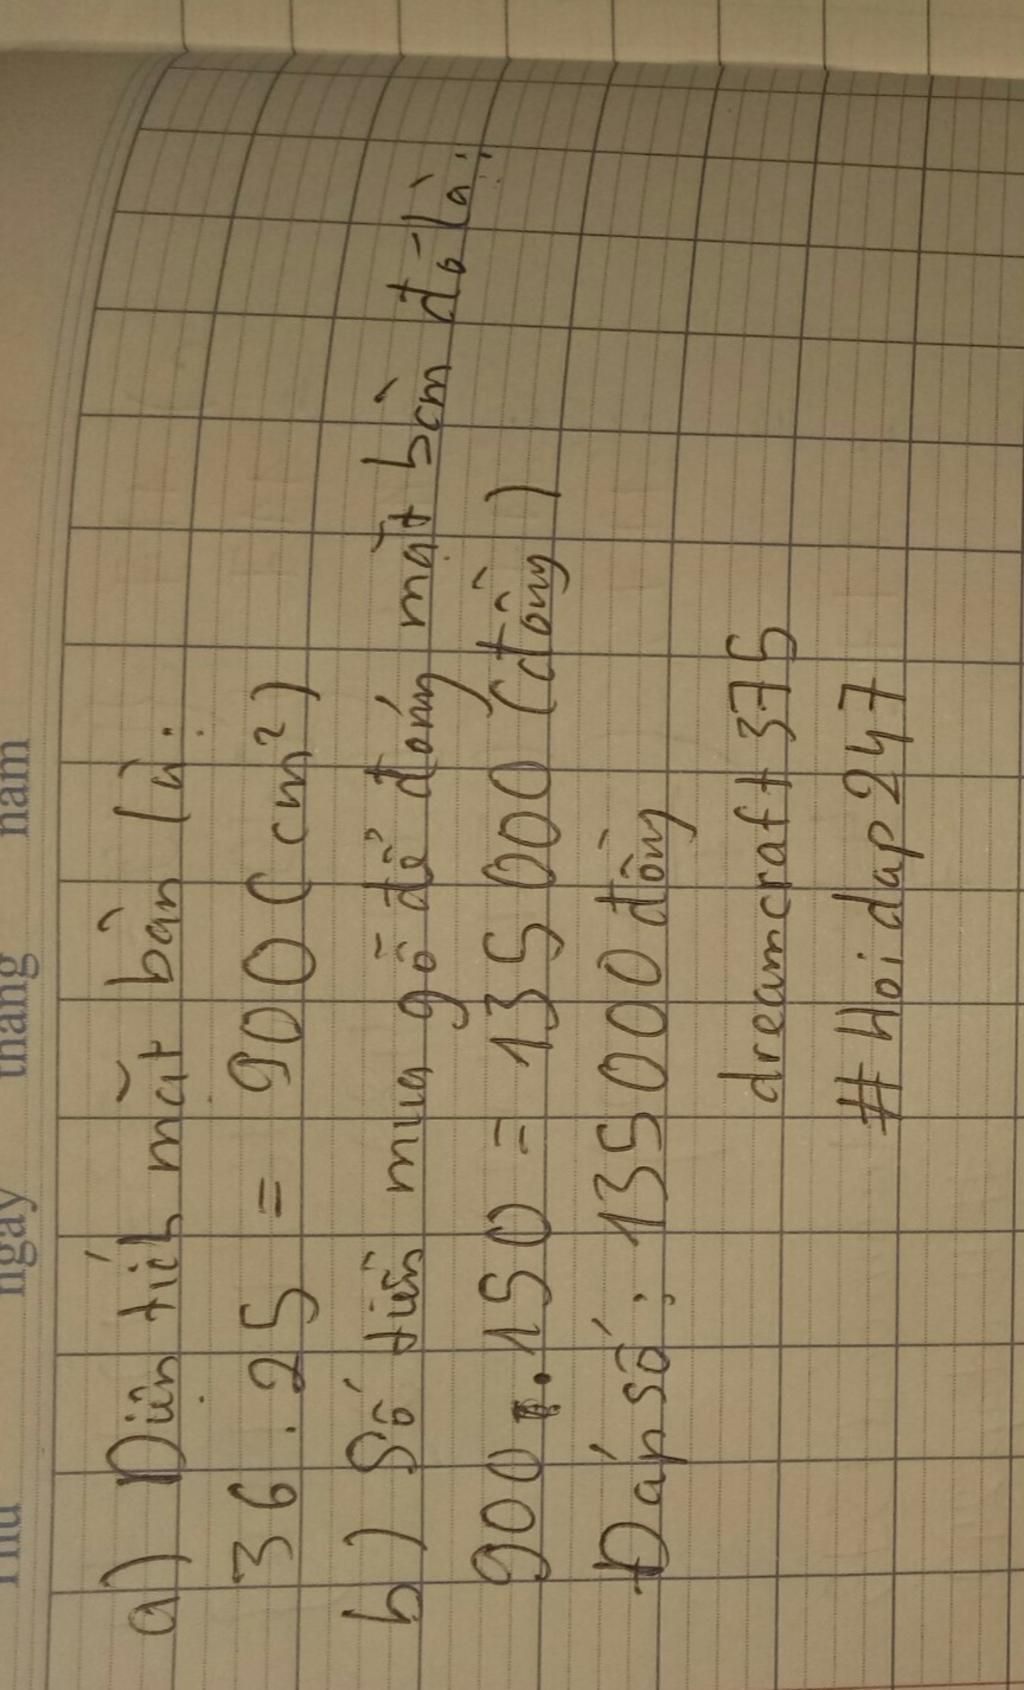 Thứ ngày tháng năm
a) Diện tích mặt bàn là:
36 . 25 = 900 (cm²)
b) Số tiền mua gỗ để đóng mặt bàn đó là:
900 . 150 = 135 000 (đồng)
Đáp số: 135 000 đồng
dreamcraft375
#Hoidap247